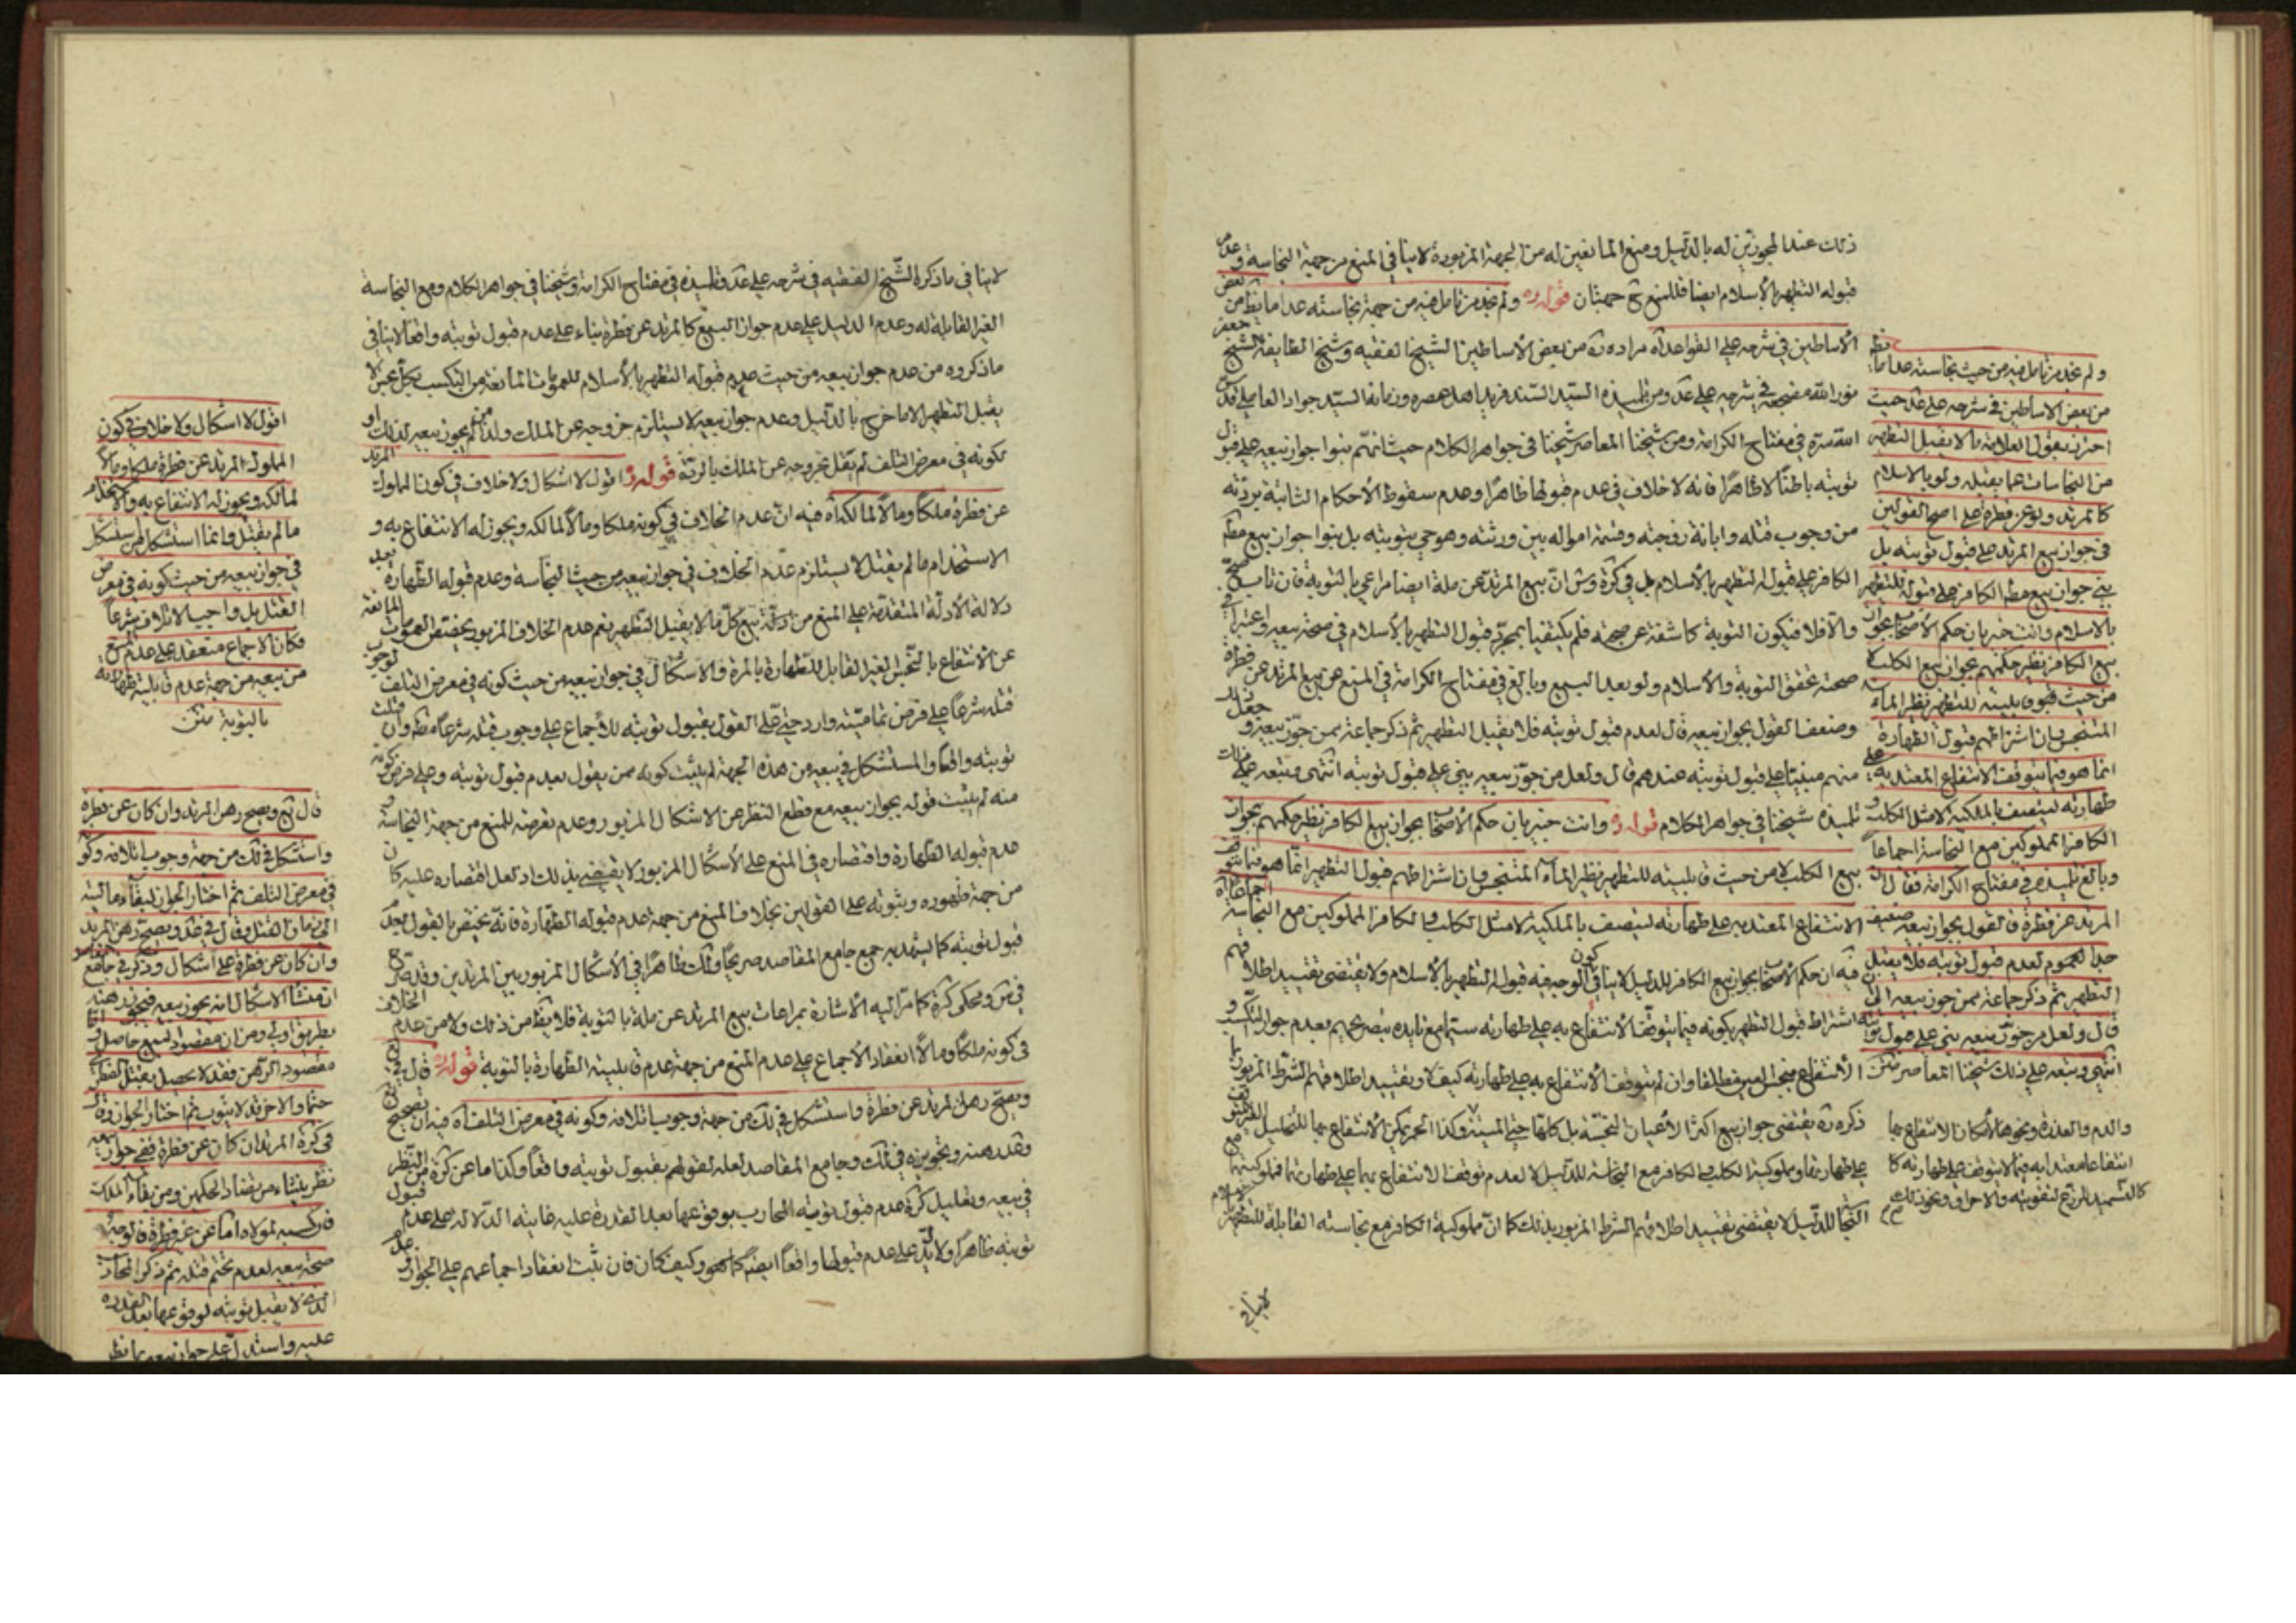 ذلك عند المجوزين له بالدليل ومنع المانعين له من الجهة المزبورة لا ينافي المنع من جهة النجاسة وعدم
قبوله التطهير بالأسلام ايضا فللمنع ح جهتان قوله ره ولم نجد من تأمل فيه من جهة نجاسته عدا ما يظهر من بعض
الأساطين في شرحه على القواعد آه مراده ره من بعض الأساطين الشيخ الفقيه وشيخ الطايفة الشيخ جعفر
نور الله مضجعه في شرحه على عد ومن تلميذه السيد السند فريد اهل عصره وزمانه السيد جواد العاملي قدس
الله سره في مفتاح الكرامة ومن شيخنا المعاصر شيخنا في جواهر الكلام حيث انهم بنوا جواز بيعه على قبول
توبته باطنًا لا ظاهرًا فانه لا خلاف في عدم قبولها ظاهرًا وعدم سقوط الأحكام الثابتة بردته
من وجوب قتله وابانة زوجته وقسمة امواله بين ورثته وهو حي بتوبته بل بنوا جواز بيع مطلق
الكافر على قبوله للتطهير بالأسلام بل في كرة وش ان بيع المرتد عن ملة ايضا مراعى بالتوبة فان تاب صح
والا فلا فيكون التوبة كاشفة عن صحته فلم يكتفيا بمجرد قبول التطهير بالأسلام في صحة بيعه واعتبرا في
صحته تحقق التوبة والأسلام ولو بعد البيع وبالغ في مفتاح الكرامة في المنع عن بيع المرتد عن فطرة
وضعف القول بجواز بيعه قال لعدم قبول توبته فلا يقبل التطهير ثم ذكر جماعة ممن جوز بيعه وجعل
منهم مبنيا على قبول توبته عندهم قال ولعل من جوز بيعه بنى على قبول توبته انتهى وتبعه على ذلك
تلميذه شيخنا في جواهر الكلام قوله ره وانت خبير بان حكم الأصحاب بجواز بيع الكافر نظير حكمهم بجواز
بيع الكلب لا من حيث قابليته للتطهير نظير الماء المتنجس وان اشتراطهم قبول التطهير انما هو فيما يتوقف
الانتفاع المعتد به على طهارته ليتصف بالملكية لا مثل الكلب والكافر المملوكين مع النجاسة اجماعا آه
فيه ان حكم الأصحاب بجواز بيع الكافر للدليل لا ينافي كون الوجه فيه قبوله التطهير بالأسلام ولا يقتضى تقييد اطلاقهم
اشتراط قبول التطهير بكونه فيما يتوقف الأنتفاع به على طهارته سيما مع تايده بتصريحهم بعدم جواز التكسب و
الأنتفاع بنجس العين مطلقا وان لم يتوقف الأنتفاع به على طهارته كيف ولو تقييد اطلاقهم الشرط المزبور بما
ذكره ره يقتضى جواز بيع اكثر الأعيان النجسة بل كلها حتى الميتة وكذا الخمر
على طهارتها ومملوكية الكلب والكافر مع النجاسة للدليل لا لعدم توقف الانتفاع بهما على طهارتهما فمملوكيتهما مع
للدليل لا يقتضى تقييد اطلاقهم الشرط المزبور بذلك كما ان مملوكية الكافر مع نجاسته القابلة للتطهير
لا ينافي
ولم نجد من تامل فيه من حيث نجاسته عدا ما يظهر
من بعض الاساطين في شرحه على عد حيث
احترز بقول العلامة ما لا يقبل التطهير
من النجاسات عما يقبله ولو بالاسلام
كالمرتد ولو عن فطرة على اصح القولين
في جواز بيع المرتد على قبول توبته بل
بنى جواز بيع مطلق الكافر على قبوله للتطهير
بالاسلام وانت خبير بان حكم الاصحاب بجواز
بيع الكافر نظير حكمهم بجواز بيع الكلب لا
من حيث قابليته للتطهير نظير الماء
المتنجس وان اشتراطهم قبول الطهارة
انما هو فيما يتوقف الانتفاع المعتد به على
طهارته ليتصف بالملكية لا مثل الكلب و
الكافر المملوكين مع النجاسة اجماعا
وبالغ تلميذه في مفتاح الكرامة فقال ان
المرتد عن فطرة فالقول بجواز بيعه ضعيف
جدا لعدم قبول توبته فلا يقبل
التطهير ثم ذكر جماعة ممن جوز بيعه الى ان
قال ولعل من جوز بيعه بنى على قبول توبته
انتهى وتبعه على ذلك شيخنا المعاصر متن
والدم والعذرة ونحوها لامكان الانتفاع بها
انتفاعا معتدا به فيما لا يتوقف على طهارته كا
لتسميد للزرع لتقويته والاحراق ونحو ذلك
لا ينافي ما ذكره الشيخ الفقيه في شرحه على عد وتلميذه في مفتاح الكرامة وشيخنا في جواهر الكلام ومع النجاسة
الغير القابلة له وعدم الدليل على عدم جواز البيع كالمرتد عن فطرة بناء على عدم قبول توبته واقعا لا ينافي
ما ذكروه من عدم جواز بيعه من حيث عدم قبوله التطهير بالأسلام للعمومات المانعة من التكسب بكل نجس لا
يقبل التطهير الا ما خرج بالدليل وعدم جواز بيعه لا يستلزم خروجه عن الملك ولذا من لم يجوز بيعه لذلك او
لكونه في معرض التلف لم يقل بخروجه عن الملك بالردة قوله ره اقول لا اشكال ولا خلاف في كون المملوك المرتد
عن فطرة ملكًا ومالًا لمالكه آه فيه ان عدم الخلاف في كونه ملكا ومالًا لمالكه ويجوز له الانتفاع به و
الاستخدام ما لم يقتل لا يستلزم عدم الخلاف في جواز بيعه من حيث النجاسة وعدم قبوله الطهارة بعد
دلالة الأدلة المتقدمة على المنع من بيع كل ما لا يقبل التطهير نعم عدم الخلاف المزبور يخصص العمومات المانعة
عن الانتفاع بالنجس الغير القابل للطهارة بالمرة والأشكال في جواز بيعه من حيث كونه في معرض التلف لوجوب
قتله شرعًا على فرض تماميته وارد حتى على القول بقبول توبته للأجماع على وجوب قتله شرعا مطلقا وان قبلت
توبته واقعًا والمستشكل في بيعه من هذه الجهة لم يثبت كونه ممن يقول بعدم قبول توبته وعلى فرض كونه
منه لم يثبت قوله بجواز بيعه مع قطع النظر عن الاشكال المزبور وعدم تعرضه للمنع من جهة النجاسة و
عدم قبوله الطهارة واقتصاره في المنع على الأشكال المزبور لا يقتضى بذلك اذ لعل اقتصاره عليه كان
من جهة ظهوره وثبوته على القولين بخلاف المنع من جهة عدم قبوله الطهارة فانه يختص بالقول بعدم
قبول توبته كما يشهد به جمع جامع المقاصد صريحًا ولك ظاهرًا في الأشكال المزبور بين المرتدين وقد صرح
كما مر اليه الأشارة بمراعات بيع المرتد عن ملة بالتوبة فلا يظهر من ذلك ولا من عدم الخلاف
في كونه ملكًا ومالًا انعقاد الأجماع على عدم المنع من جهة عدم قابليته الطهارة بالتوبة قوله ره قال في يع
ويصح رهن المرتد عن فطرة واستشكل في لك من جهة وجوب اتلافه وكونه في معرض التلف آه فيه ان تصحيح يع
وعد رهنه وتجويزه في لك وجامع المقاصد لعله لقولهم بقبول توبته واقعا وكذا ما عن كرة من النظر
في بيعه وتعليل كرة عدم قبول توبة المحارب بوقوعها بعد القدرة عليه غايته الدلالة على عدم قبول
توبته ظاهرًا ولا يدل على عدم قبولها واقعًا ايضًا كما هو وكيف كان فان ثبت انعقاد اجماعهم على الجواز
اقول لا اشكال ولا خلاف في كون
المملوك المرتد عن فطرة ملكا ومالا
لمالكه ويجوز له الانتفاع به والاستخدام
ما لم يقتل وانما استشكل من استشكل
في جواز بيعه من حيث كونه في معرض
القتل بل واجب الاتلاف شرعًا
فكان الاجماع منعقد على عدم المنع
من بيعه من جهة عدم قابليته طهارته
بالتوبة متن
قال يع ويصح رهن المرتد وان كان عن فطرة
واستشكل في لك من جهة وجوب اتلافه وكونه
في معرض التلف ثم اختار الجواز لبقاء ماليته
الى زمان القتل وقال في عد ويصح رهن المرتد
وان كان عن فطرة على اشكال وذكر في جامع المقاصد
ان منشأ الاشكال انه يجوز بيعه فيجوز رهنه
بطريق اولى ومن ان مقصود البيع حاصل واما
مقصود الرهن فقد لا يحصل بقتل الفطري
حتما والاخر قد لا يتوب ثم اختار الجواز وقال
في كرة المرتد ان كان عن فطرة ففي جواز بيعه
نظر ينشاء من تضاد الحكمين ومن بقاء الملك
فان كسبه لمولاه اما عن غير فطرة فالوجه
صحة بيعه لعدم تحتم قتله ثم ذكر المحارب
الذي لا يقبل توبته لوقوعها بعد القدرة
عليه واستدل على جواز بيعه بما يظهر